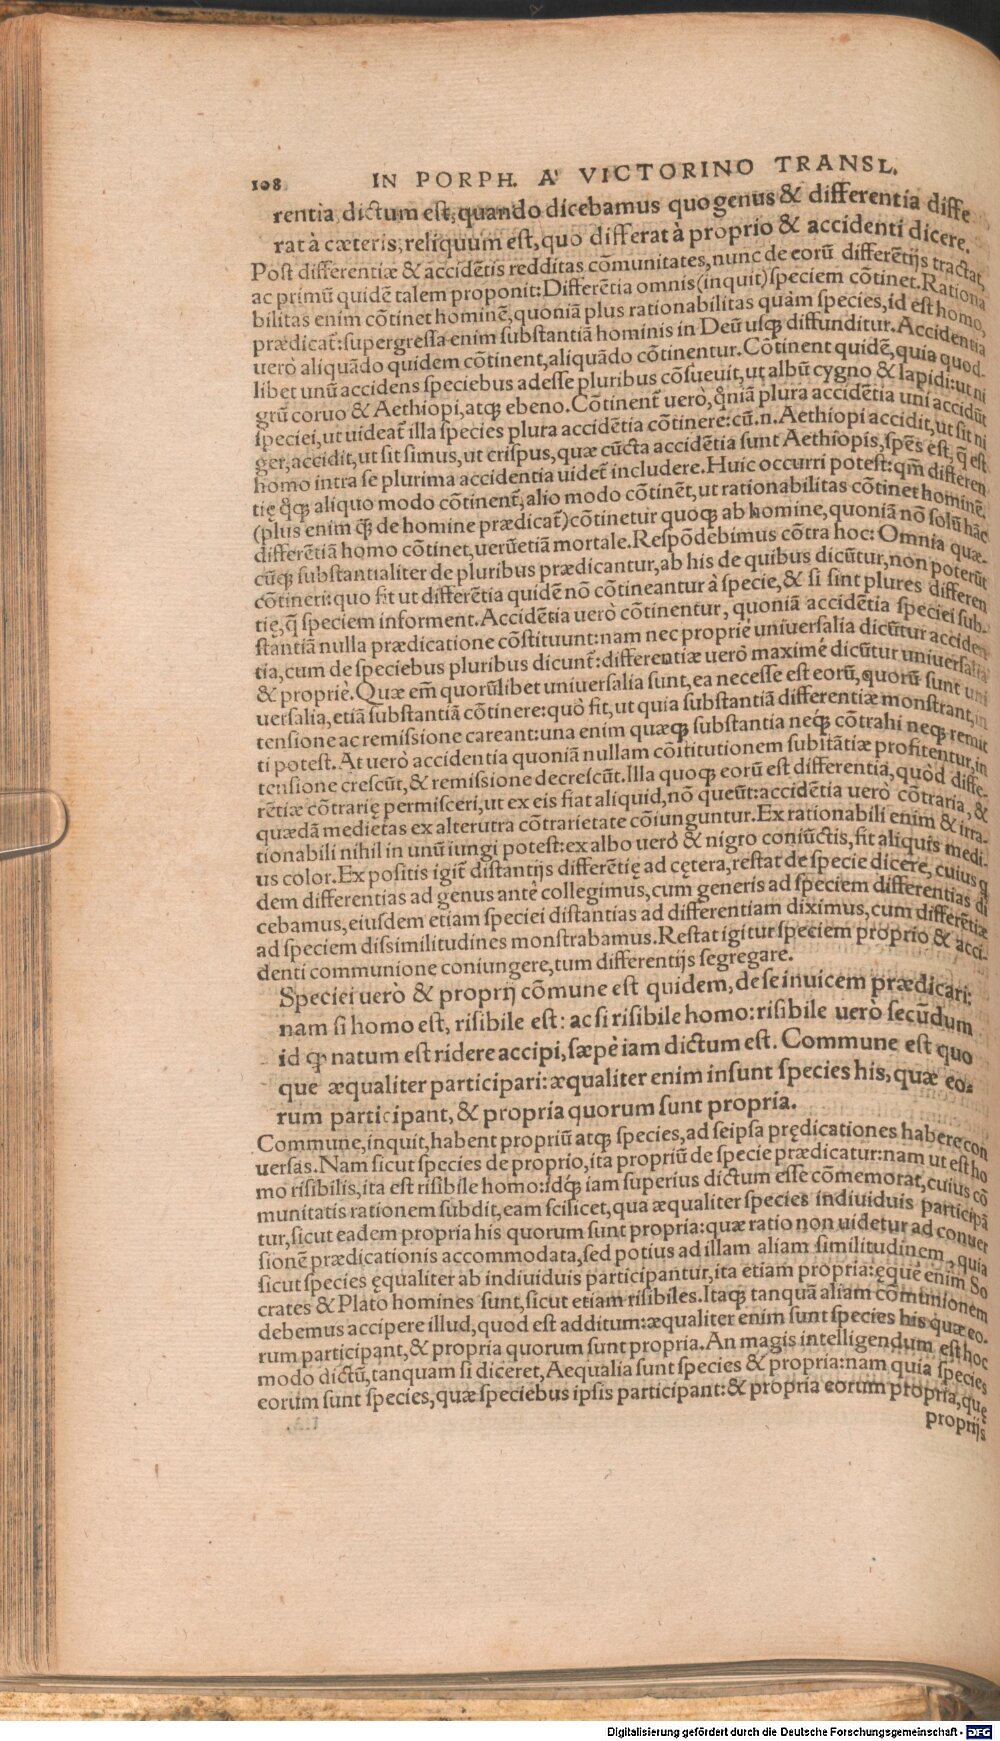 108 IN PORPH. A' VICTORINO TRANSL.
rentia, dictum est, quando dicebamus quo genus & differentia diffe
rat à cæteris, reliquum est, quo differat à proprio & accidenti dicere.
Post differentiæ & accidētis redditas cōmunitates, nunc de eorū differētijs tractat,
ac primū quidē talem proponit: Differētia omnis (inquit) speciem cōtinet. Rationa
bilitas enim cōtinet hominē, quoniā plus rationabilitas quàm species, id est homo,
prædicat̄: supergressa enim substantiā hominis in Deū usq; diffunditur. Accidentia
uerò aliquādo quidem cōtinent, aliquādo cōtinentur. Cōtinent quidē, quia quod-
libet unū accidens speciebus adesse pluribus cōsueuit, ut albū cygno & lapidi: ut ni
grū coruo & Aethiopi, atq; ebeno. Cōtinent̄ uerò, q̄niā plura accidētia uni accidūt
speciei, ut uideat̄ illa species plura accidētia cōtinere: cū.n. Aethiopi accidit, ut sit ni
ger, accidit, ut sit simus, ut crispus, quæ cūcta accidētia sunt Aethiopis, spēs est, q̄ est
homo intra se plurima accidentia uidet̄ includere. Huic occurri potest: qm̄ differen
tię q̄q; aliquo modo cōtinent̄, alio modo cōtinēt, ut rationabilitas cōtinet hominē,
(plus enim q̄ de homine prædicat̄) cōtinetur quoq; ab homine, quoniā nō solū hāc
differētiā homo cōtinet, uerūetiā mortale. Respōdebimus cōtra hoc: Omnia quæ-
cūq; substantialiter de pluribus prædicantur, ab his de quibus dicūtur, non poterūt
cōtineri: quo fit ut differētia quidē nō cōtineantur à specie, & si sint plures differen
tię, q̄ speciem informent. Accidētia uerò cōtinentur, quoniā accidētia speciei sub-
stantiā nulla prædicatione cōstituunt: nam nec propriè uniuersalia dicūtur acciden
tia, cum de speciebus pluribus dicunt̄: differentiæ uerò maximè dicūtur uniuersalia
& propriè. Quæ em̄ quorūlibet uniuersalia sunt, ea necesse est eorū, quorū sunt uni
uersalia, etiā substantiā cōtinere: quò fit, ut quia substantiā differentiæ monstrant, in
tensione ac remissione careant: una enim quæq; substantia neq; cōtrahi neq; remit
ti potest. At uerò accidentia quoniā nullam cōstitutionem substātiæ profitentur, in
tensione crescūt, & remissione decrescūt. Illa quoq; eorū est differentia, quòd diffe-
rētiæ cōtrarię permisceri, ut ex eis fiat aliquid, nō queūt: accidētia uerò cōtraria, &
quædā medietas ex alterutra cōtrarietate cōiunguntur. Ex rationabili enim & irra-
tionabili nihil in unū iungi potest: ex albo uerò & nigro coniūctis, fit aliquis medi-
us color. Expositis igit̄ distantijs differētię ad cętera, restat de specie dicere, cuius q
dem differentias ad genus antè collegimus, cum generis ad speciem differentias di
cebamus, eiusdem etiam speciei distantias ad differentiam diximus, cum differētiæ
ad speciem dissimilitudines monstrabamus. Restat igitur speciem proprio & acci-
denti communione coniungere, tum differentijs segregare.
Speciei uerò & proprij cōmune est quidem, de se inuicem prædicari:
nam si homo est, risibile est: ac si risibile homo: risibile uerò secūdum
id q̄ natum est ridere accipi, sæpè iam dictum est. Commune est quo
que æqualiter participari: æqualiter enim insunt species his, quæ eo-
rum participant, & propria quorum sunt propria.
Commune, inquit, habent propriū atq; species, ad seipsa prędicationes habere con
uersas. Nam sicut species de proprio, ita propriū de specie prædicatur: nam ut est ho
mo risibilis, ita est risibile homo: idq; iam superius dictum esse cōmemorat, cuius cō
munitatis rationem subdit, eam scilicet, qua æqualiter species indiuiduis participā
tur, sicut eadem propria his quorum sunt propria: quæ ratio non uidetur ad conuer
sionē prædicationis accommodata, sed potius ad illam aliam similitudinem, quia
sicut species ęqualiter ab indiuiduis participantur, ita etiam propria: ęquè enim So
crates & Plato homines sunt, sicut etiam risibiles. Itaq; tanquā aliam cōmunionem
debemus accipere illud, quod est additum: æqualiter enim sunt species his quæ eo-
rum participant, & propria quorum sunt propria. An magis intelligendum est hoc
modo dictū, tanquam si diceret, Aequalia sunt species & propria: nam quia species
eorum sunt species, quæ speciebus ipsis participant: & propria eorum propria, quę
proprijs
Digitalisierung gefördert durch die Deutsche Forschungsgemeinschaft - DFG